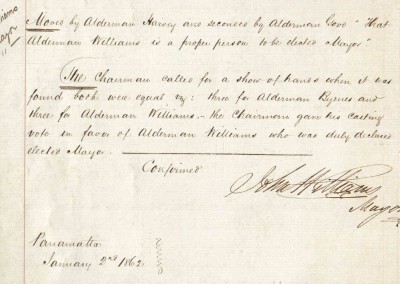 Moved by Alderman Harvey and seconded by Alderman Gove "That
Alderman Williams is a proper person to be elected Mayor"
The Chairman called for a show of hands when it was
found both were equal viz: three for Alderman Byrnes and
three for Alderman Williams - the Chairman gave his casting
vote in favor of Alderman Williams who was duly declared
elected Mayor.
Confirmed
John Williams
Mayor
Parramatta
January 2nd 1862